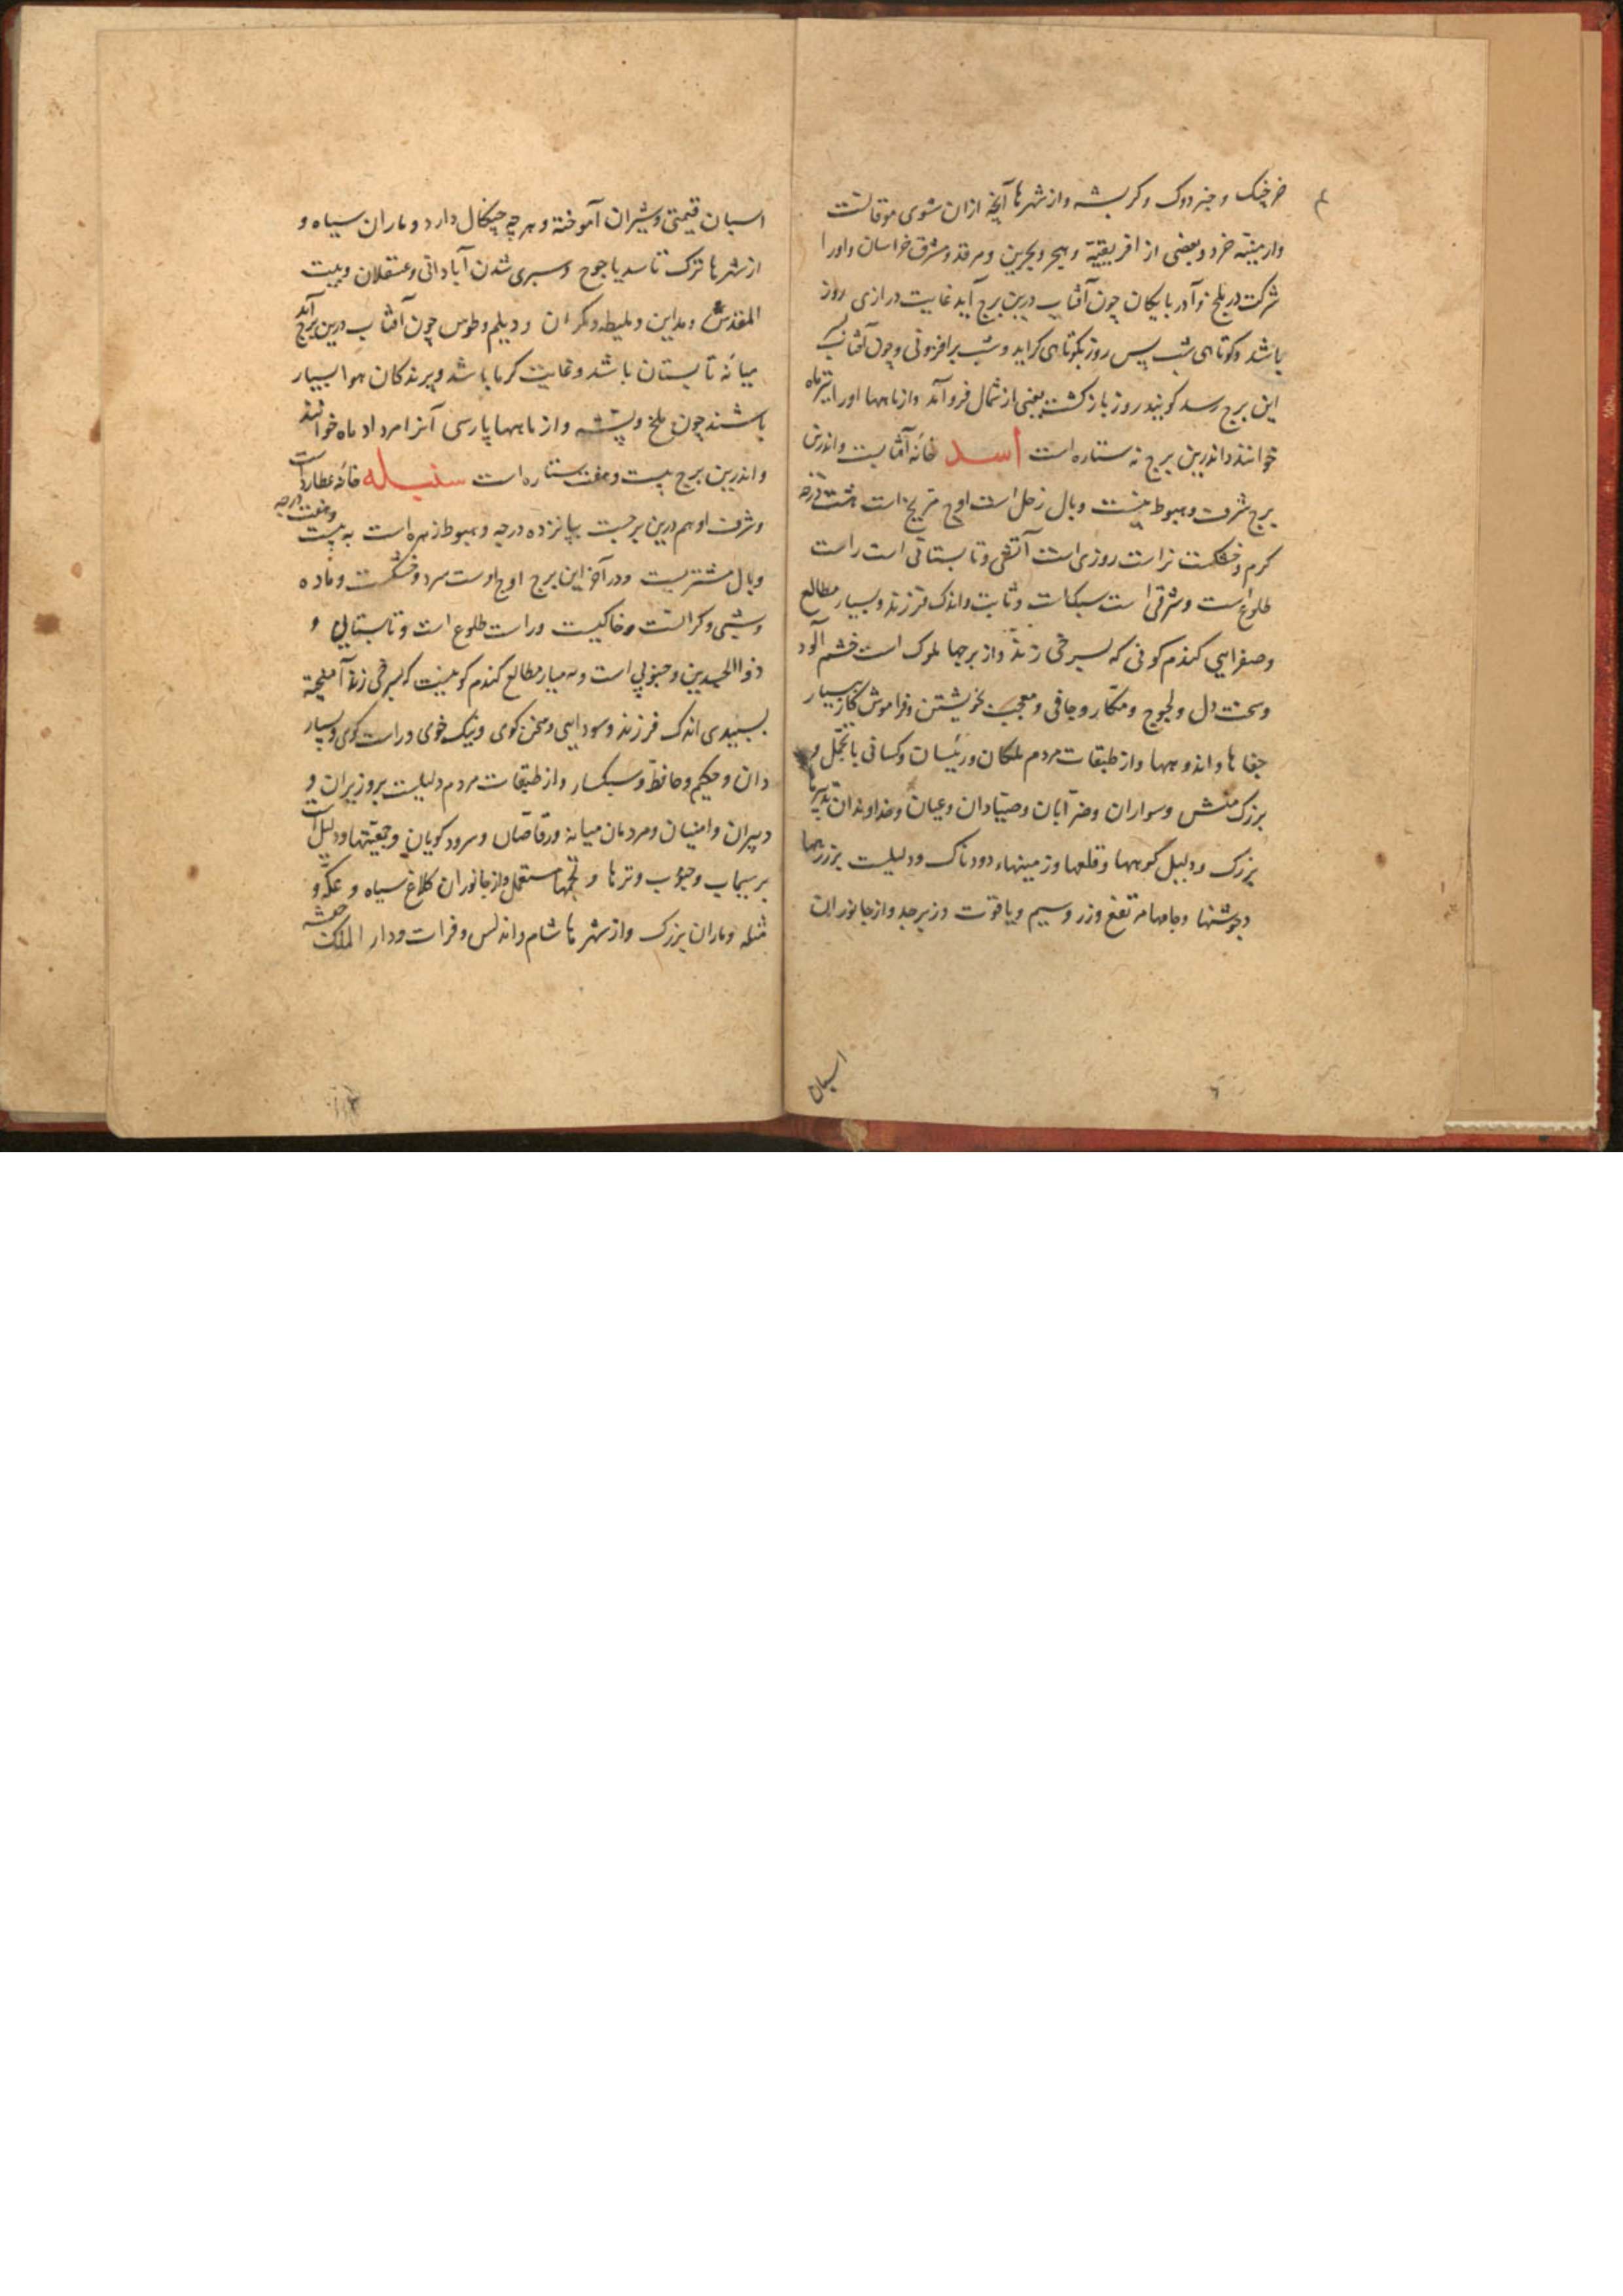 خرچنک و جنردوک و کربشه وازشهرها آنچه ازان سوی موقانست
وارمینیّه خرد و بعضی از افریقیّه و هجر و بحرین و مرقد و مشرق خراسان واورا
شرکت در بلخ وآذربایکان چون آفتاب درین برج آید غایت درازی روز
باشد وکوتاهی شب پس روز بکوتاهی کراید وشب برافزونی وچون آفتاب
این برج رسد کویند روز بازکشت یعنی از شمال فروآمد وازماهها اورا تیرماه
خوانند واندرین برج نه ستاره است اسد خانهٔ آفتابست واندرین
برج شرف وهبوط نیست وبال زحل است اوج مریخ است هشت درجه
کرم وخشکست نراست روزی است آتشی وتابستانی است راست
طلوع است وشرقی است سبکات وثابت واندک فرزند وبسیار مطالع
وصفرایی کندم کونی که بسرخی زند واز برجها ملوک است خشم آلود
وسخت دل ولجوج ومکّار وجافی ومعجب بخویشتن وفراموش کار بسیار
جفاها واندوهها واز طبقات مردم ملکان ورئیسان وکسانی باتجمّل و
بزرک منش وسواران وضرّابان وصیّادان وعیان وخداوندان تدبیرها
بزرک ودلیل کوهها وقلعها وزمینهاء دودناک ودلیلست برزرهها
وجوشنها وجامها مرتفع وزر وسیم ویاقوت وزبرجد وازجانوران
اسبان
٦
اسبان قیمتی وشیران آموخته وهرچه چنکال دارد وماران سیاه و
ازشهرها ترک تاسد یاجوج وسپری شدن آبادانی وعسقلان وبیت
المقدس ومداین وملیطه ومکران ودیلم وطوس چون آفتاب درین برج آید
میانهٔ تابستان باشد وغایت کرما باشد وپرندکان هوا بسیار
باشند چون ملخ وپشه وازماهها پارسی آنرا مرداد ماه خوانند
واندرین برج بیست وهفت ستاره است سنبله خانهٔ عطارد است
وشرف اوهم درین برجست بپانزده درجه وهبوط زهره است به بیست وهفت درجه
وبال مشتریست ودر آخر این برج اوج اوست سرد وخشکست وماده
وشبی وکرانست وخاکیست وراست طلوع است وتابستانی و
ذواالجسدین وجنوبی است وبسیار مطالع کندم کونیست که بسرخی زند آمیخته
بسپیدی اندک فرزند وسودایی وسخن کوی ونیک خوی وراست کوی وبسیار
دان وحکیم وحافظ وسبکسار وازطبقات مردم دلیلست بروزیران و
دبیران وامینان ومردمان میانه ورقّاصان وسرودکویان وجمعیّتها ودلیل است
برسیماب وحبوب وترها وتخمها مستعمل وازجانوران کلاغ سیاه وعکّه و
وماران بزرک وازشهرها شام واندلس وفرات ودار الملک حبشه